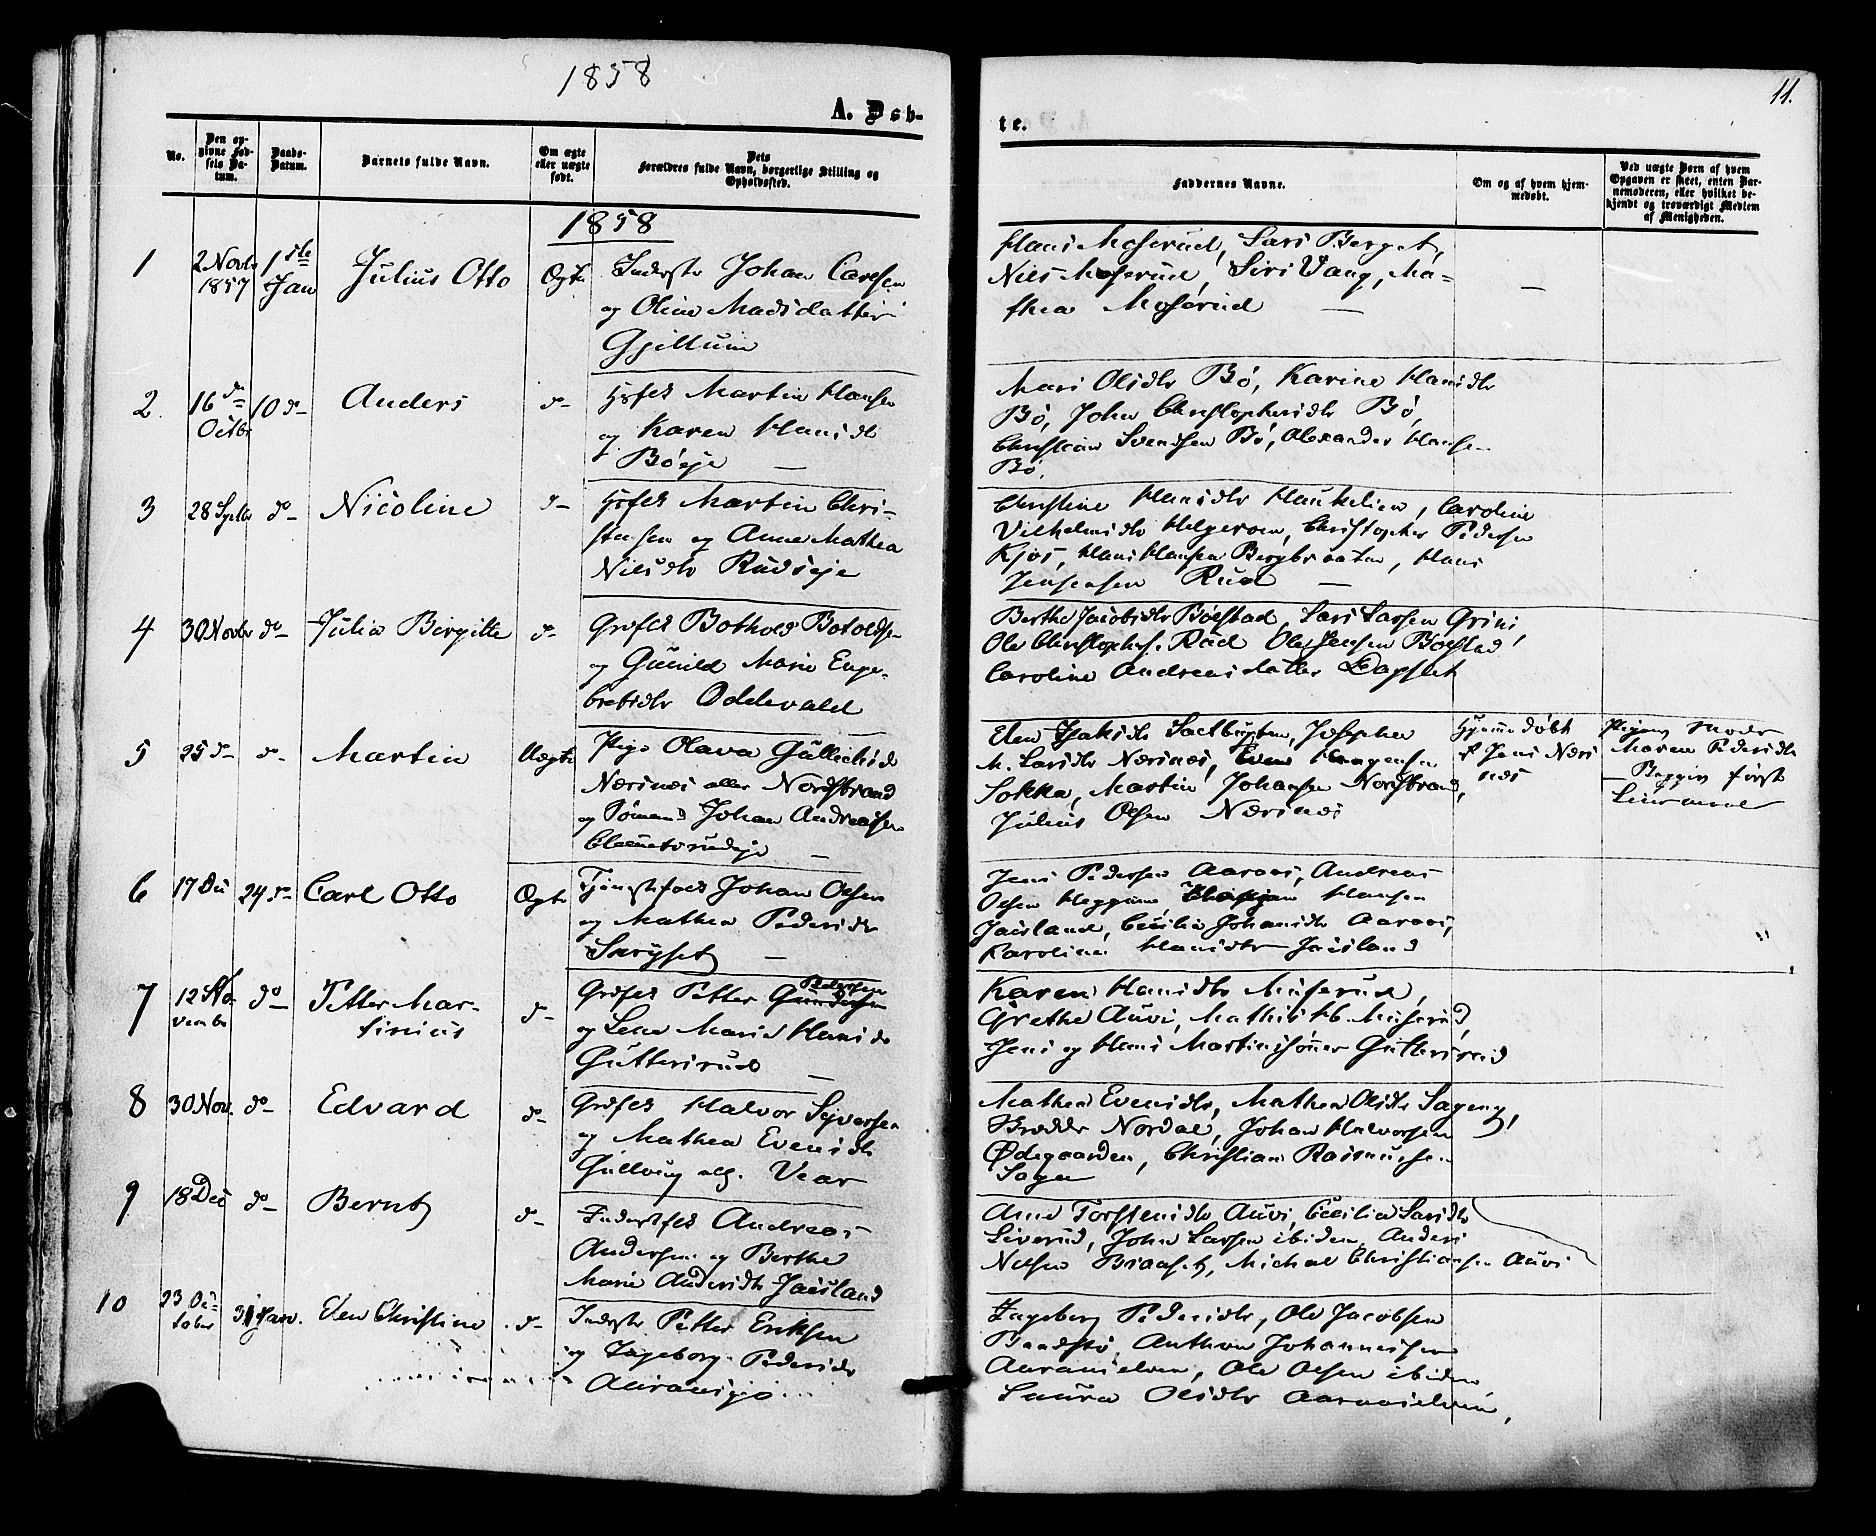 1858
11.
A. Døb-
te.
No.
Den op-
givne Fød-
sels Da-
tum.
Daabs-
Datum.
Barnets fulde Navn.
Om ægte
eller uægte
født.
Dets
Forældres fulde Navn, borgerlige Stilling og
Opholdssted.
Faddernes Navne.
Om og af hvem hjem-
medøbt.
Ved uægte Børn af hvem
Opgaven er skeet, enten Bar-
nemoderen, eller hvilket be-
kjendt og troværdigt Medlem
af Menigheden.
1858
1
2 Novbr
1857
1ste
Jan
Julius Otto
Ægte
Inderste Johan Carlsen
og Oline Madsdatter
Gjellum
Hans Moserud, Lars Berget,
Nils Moserud, Siri Vang, Ma-
thea Moserud —
—
2.
16 d
Octbr
10 d-
Anders
d-
Hsflk Martin Hansen
og Karen Hansdtr
Bøeje —
Mari Olsdtr Bø, Karine Hansdtr
Bø, John Christophersdtr Bø,
Christian Svendsen Bø, Alexander Hansen
Bø
3
28 Sptbr
do-
Nicoline
d-
Hsflk Martin Chri-
stensen og Anne Mathea
Nilsdtr Rudseje
Christine Hansdtr Haukelien, Caroline
Vilhelmsdtr Helgeroen, Christopher Pedersen
Kjos, Hans Hansen Bergbraaten, Hans
Jensensen Rud —
4
30 Novbr
do-
Julia Birgitte
d-
Grdflk Bothold Botoldsen
og Gunild Marie Enge-
bretsdtr Oddevald
Berthe Jacobsdtr Bølstad, Lars Larsen Grini
Ole Christophs. Rud Ole Jensen Bølstad
Caroline Andreasdatter Dapslet
5
25 d-
d-
Martin
Uægte
Pige Olava Gullichsd
Nærsnes eller Nordstrand
og Sømand Johan Andreasen
Clemetsrudeje —
M. Larsdtr Nærsnes, Even Haagensen
Sokka, Martin Johansen Nordstrand,
Julius Olsen Nærsnes
Hjemmedøbt
af Jens Nærs
nes
Pigens Moder
Maren Pedersdtr
6
17 De
24 d-
Carl Otto
Ægte
Tjenestfolk Johan Olsen
og Mathea Pedersdtr
Skryset —
Jens Pedersen Aaraas, Andreas
Olsen Heggum, Hansen
Jaisland, Cecilie Johansdtr Aaraas,
Karoline Hansdtr Jaisland
7
12 No
vembr
do-
Petter Mar-
tinius
d-
Grdflk Petter Gundersen
og Lene Marie Hansdt
Guttersrud —
Karen Hansdtr Muserud,
Grethe Auvi, Mathis Hs. Muserud,
Jens og Hans Martinsønner Guttersrud
8
30 Nov.
do-
Edvard
d-
Grdflk Halvor Syversen
og Mathea Evensdtr
Gullaug alg. Vear
Mathea Evensdtr, Mathea Olsdtr Sagen,
Nordal, Johan Halvorsen
Ødegaarden, Christian Rasmussen
Sagen
9
18 Dec
do-
Bernt
d-
Inderstflk Andreas
Andersen og Berthe
Marie Andersdtr Jaisland
Ane Torstensdtr Auvi, Cecilie Larsdtr
Liverud, John Larsen ibidem, Anders
Nilsen Braaset, Michal Christiansen Auvi
10
23 Oc-
tober
31 Jan.
Elen Christine
d-
Inderste Petter Eriksen
og Ingeborg Pedersdtr
Ingeborg Pedersdtr, Ole Jacobsen
Anthon Johannessen
Ole Olsen ibidem,
Laura Olsdtr